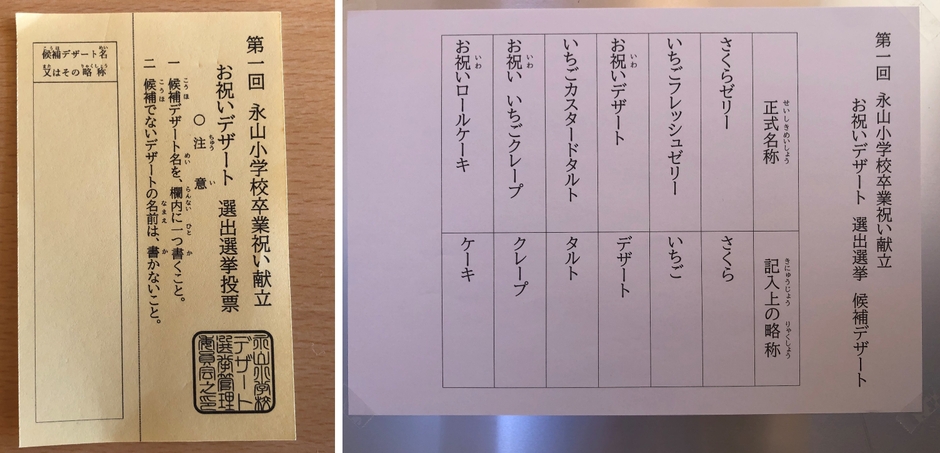 第一回 永山小学校卒業祝い献立
お祝いデザート 選出選挙投票
○注意
一 候補デザート名を、欄内に一つ書くこと。
二 候補でないデザートの名前は、書かないこと。
候補デザート名
又はその略称
永山小学校
デザート
選挙管理
委員会之印
第一回 永山小学校卒業祝い献立
お祝いデザート 選出選挙 候補デザート
正式名称 記入上の略称
さくらゼリー さくら
いちごフレッシュゼリー いちご
お祝いデザート デザート
いちごカスタードタルト タルト
お祝い いちごクレープ クレープ
お祝いロールケーキ ケーキ